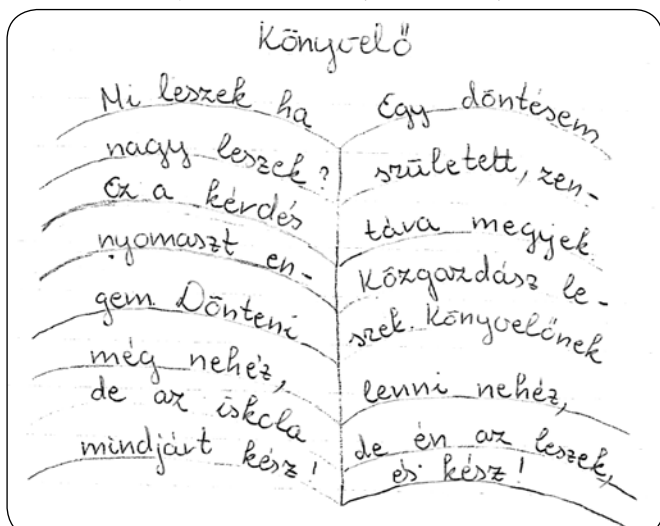 Könyvelő
Mi leszek ha
nagy leszek?
Ez a kérdés
nyomaszt en-
gem. Dönteni
még nehéz,
de az iskola
mindjárt kész!
Egy döntésem
született, zen-
tára megyek.
Közgazdász le-
szek. Könyvelőnek
lenni nehéz,
de én az leszek,
és kész!